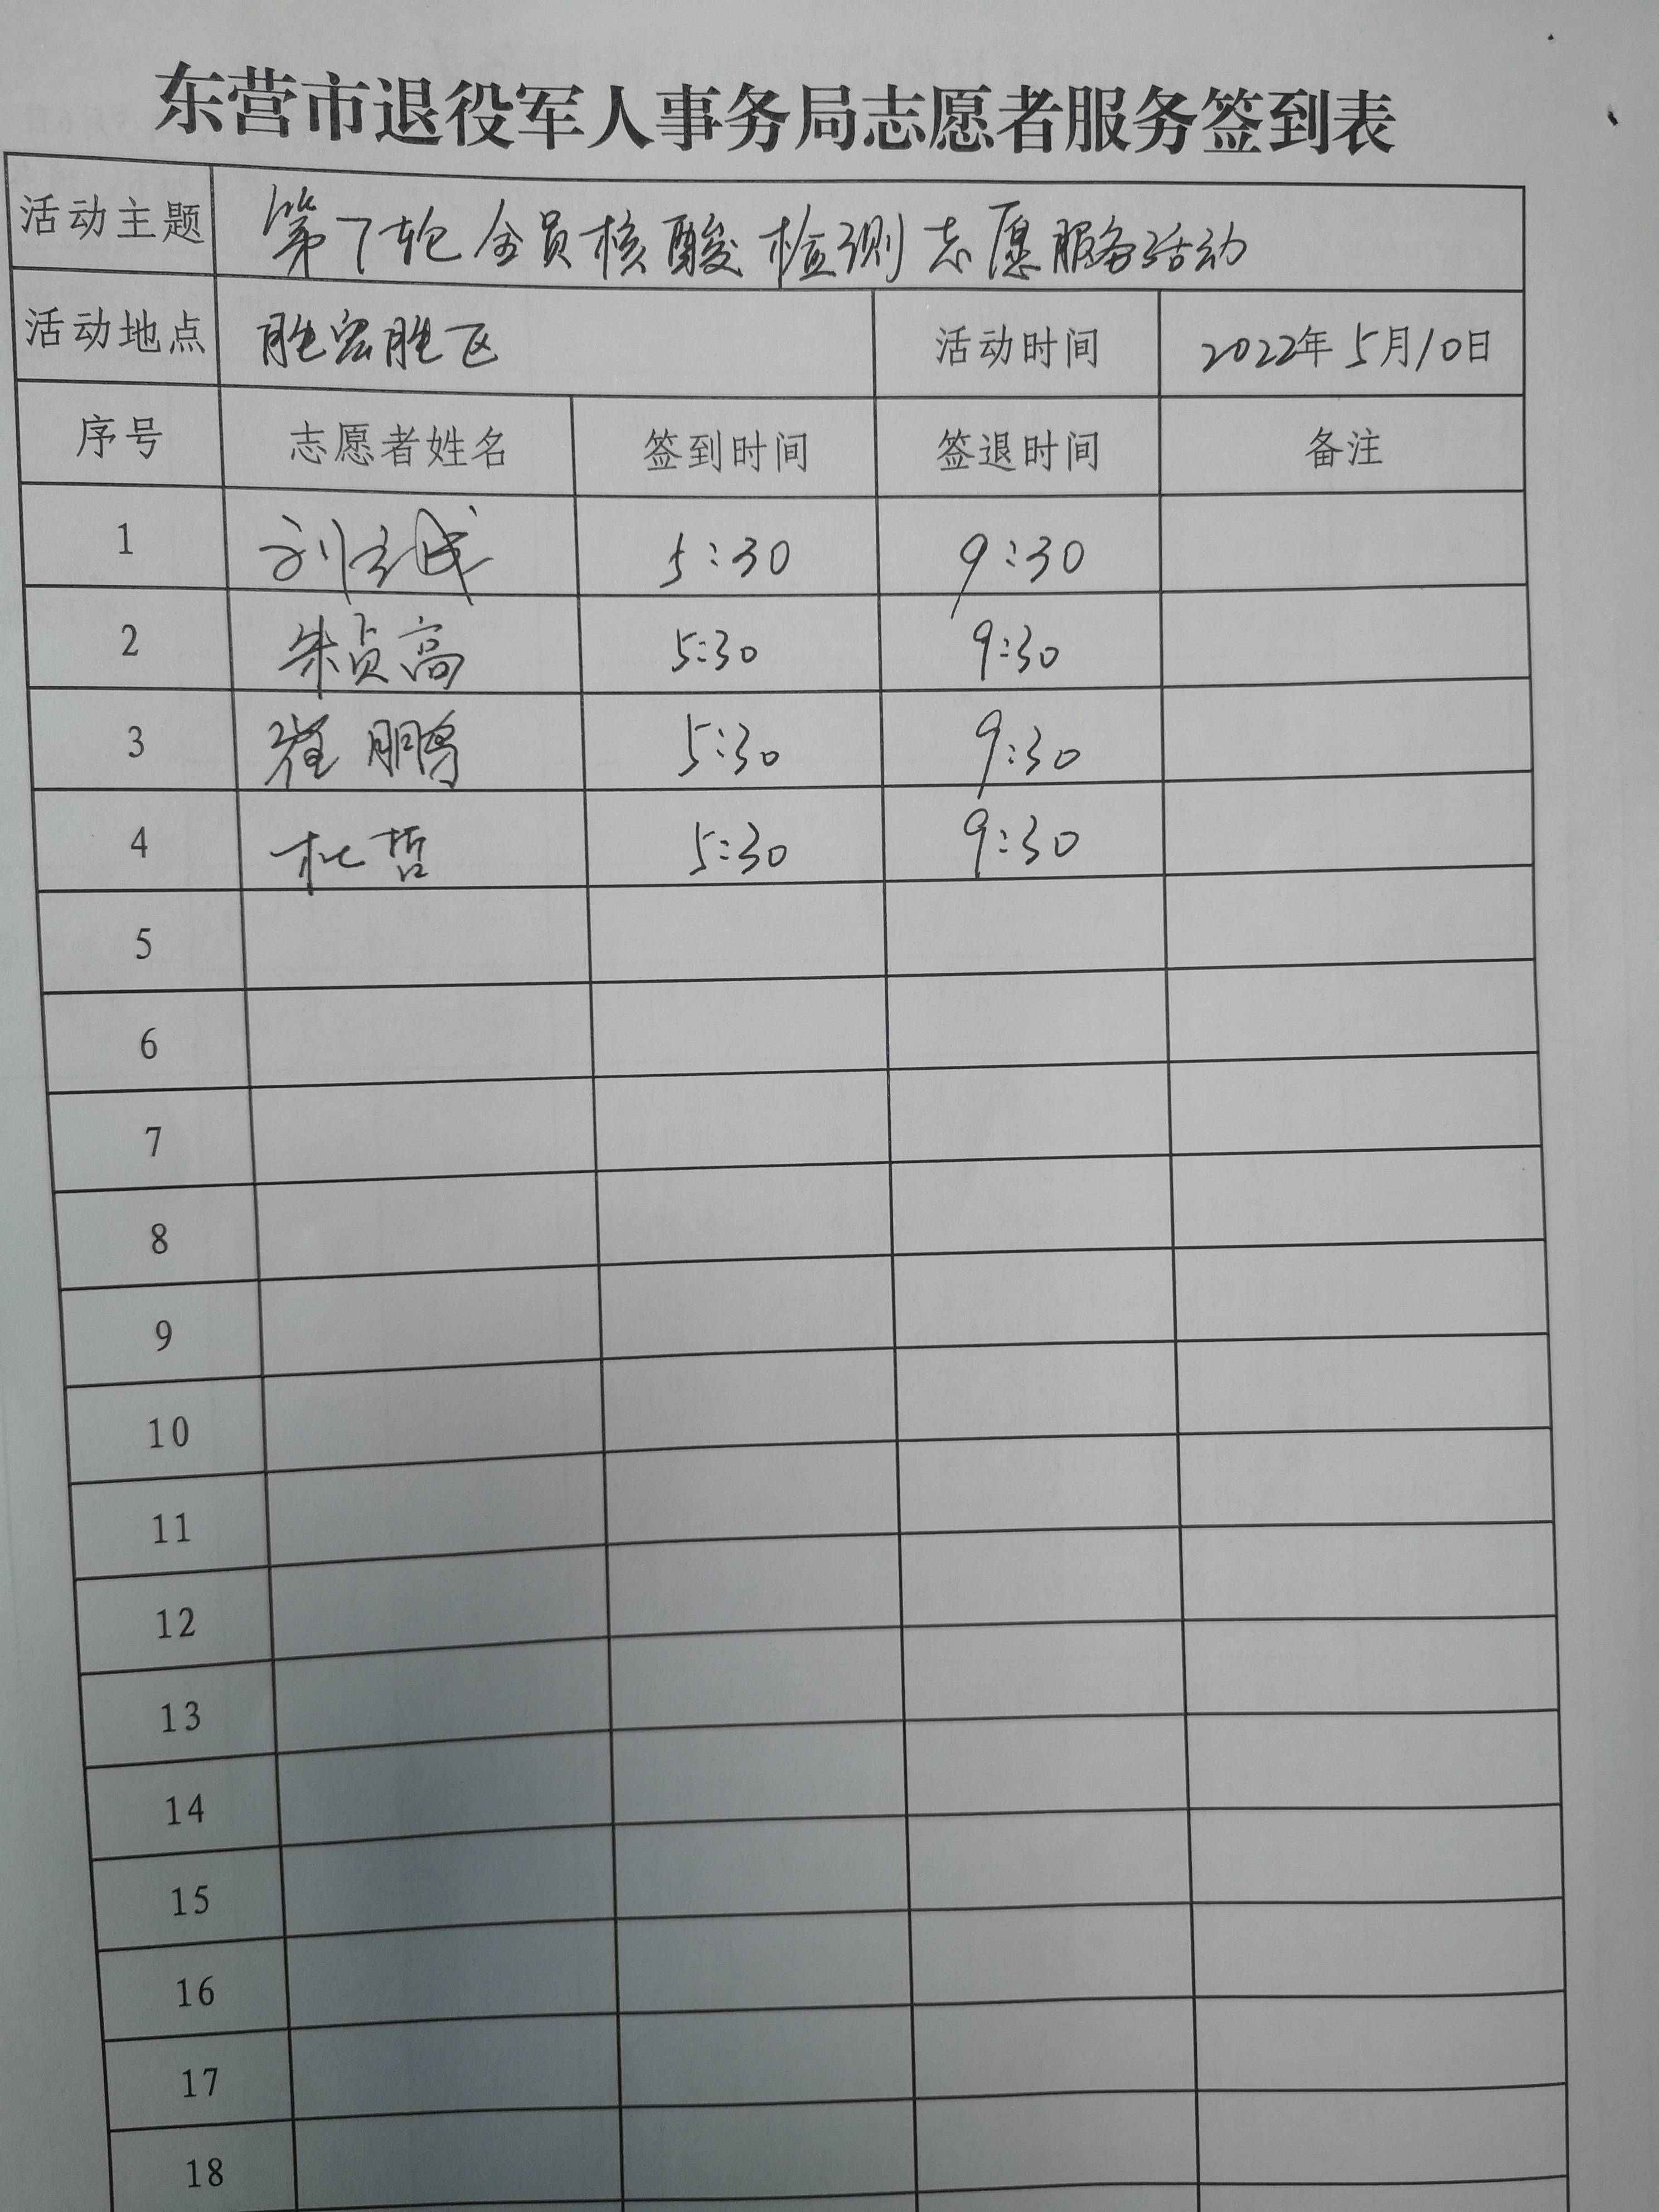 东营市退役军人事务局志愿者服务签到表
活动主题 第7轮全员核酸检测志愿服务活动
活动地点 胜宏胜区 活动时间 2022年5月10日
序号 志愿者姓名 签到时间 签退时间 备注
1 刘 5:30 9:30
2 朱贞高 5:30 9:30
3 崔鹏 5:30 9:30
4 杜哲 5:30 9:30
5
6
7
8
9
10
11
12
13
14
15
16
17
18